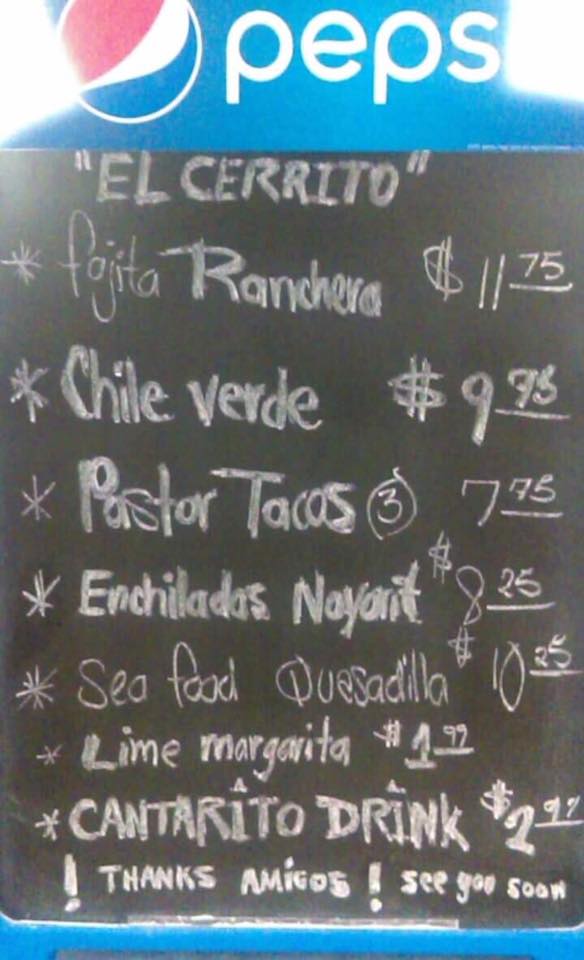 peps
"EL CERRITO"
* fajita Ranchera $ 11 75
* Chile verde $ 9 75
* Pastor Tacos 3 7 75
* Enchiladas Nayarit $ 8 25
* Sea food Quesadilla $ 10 25
* Lime margarita $ 1 99
* CANTARÎTO DRÎNK $ 2 99
! THANKS AMiGOS ! see you soon